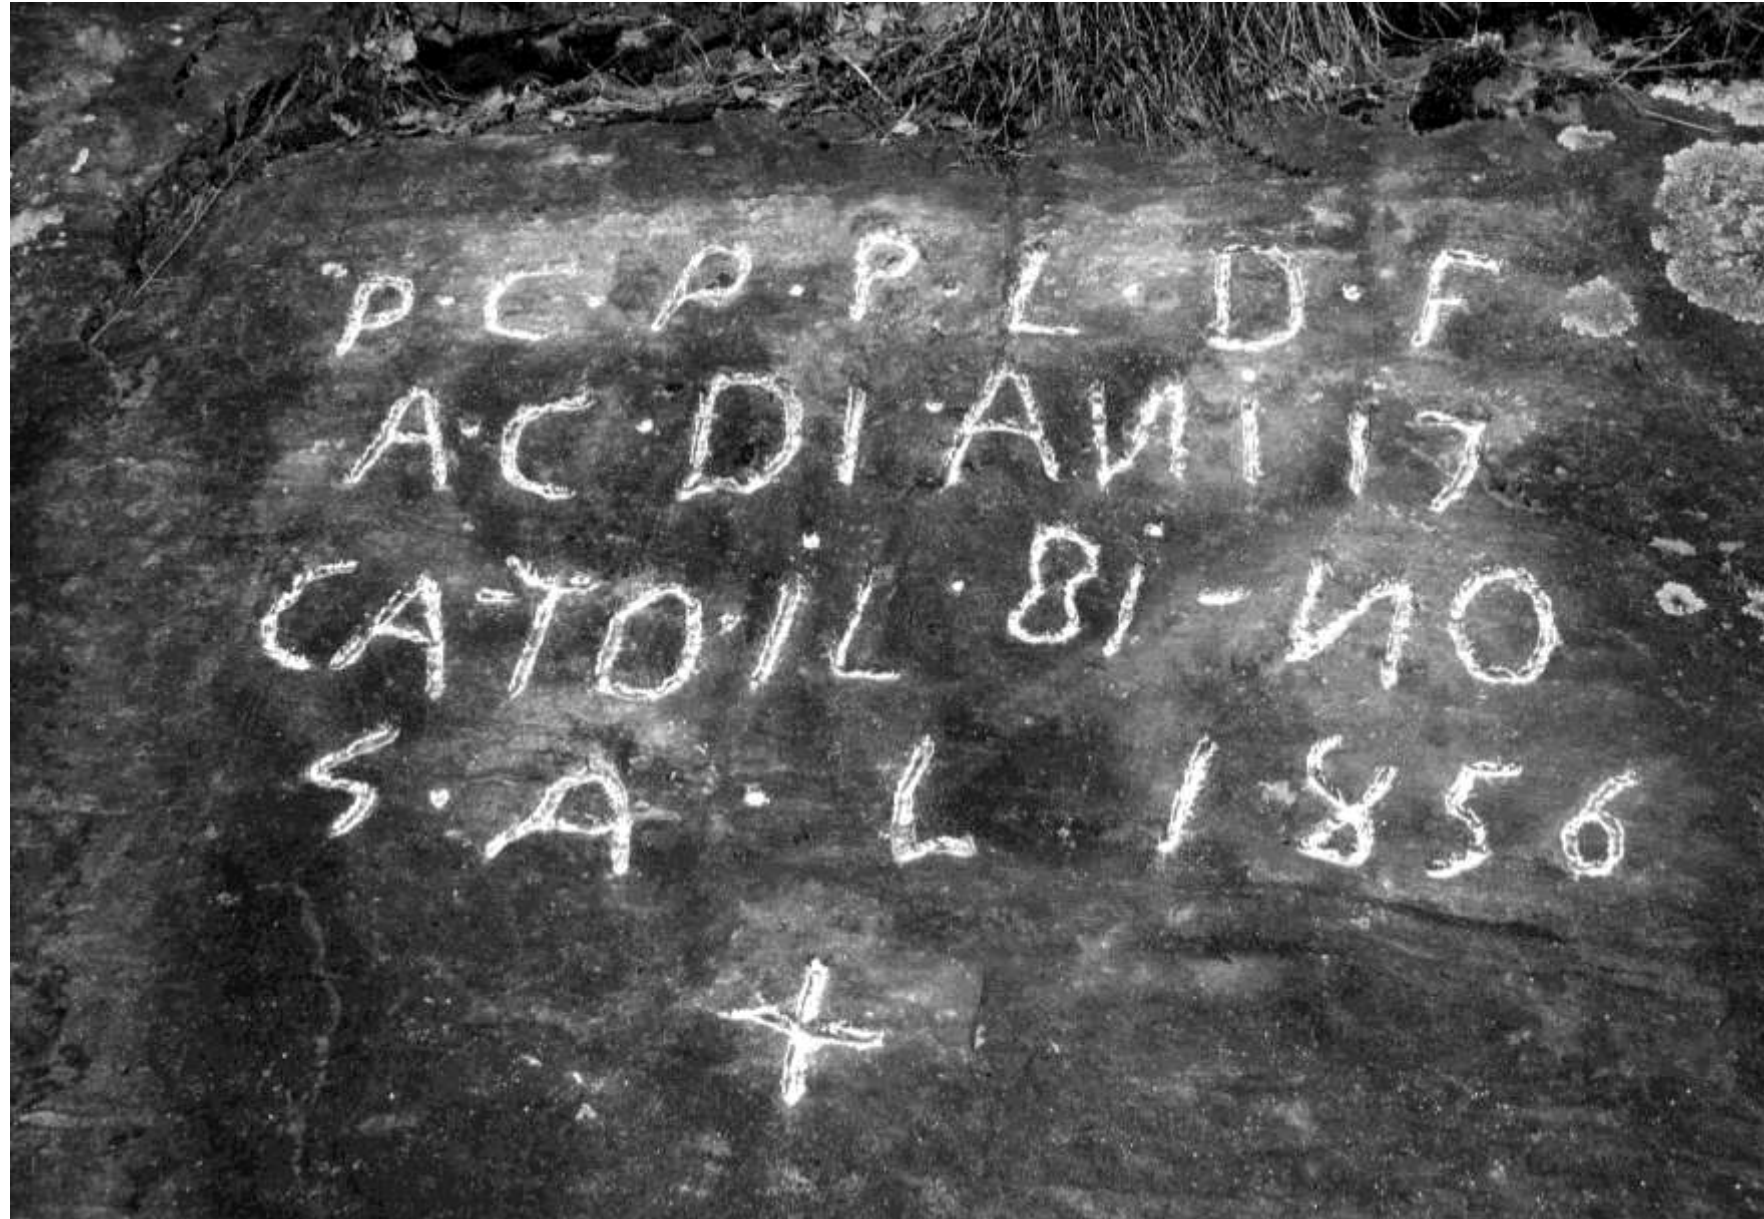 P·C·P·P·L·D·F
A·C·DI·ANI 17
CA-TO·IL·BI-NO
S·A·L 1856
+